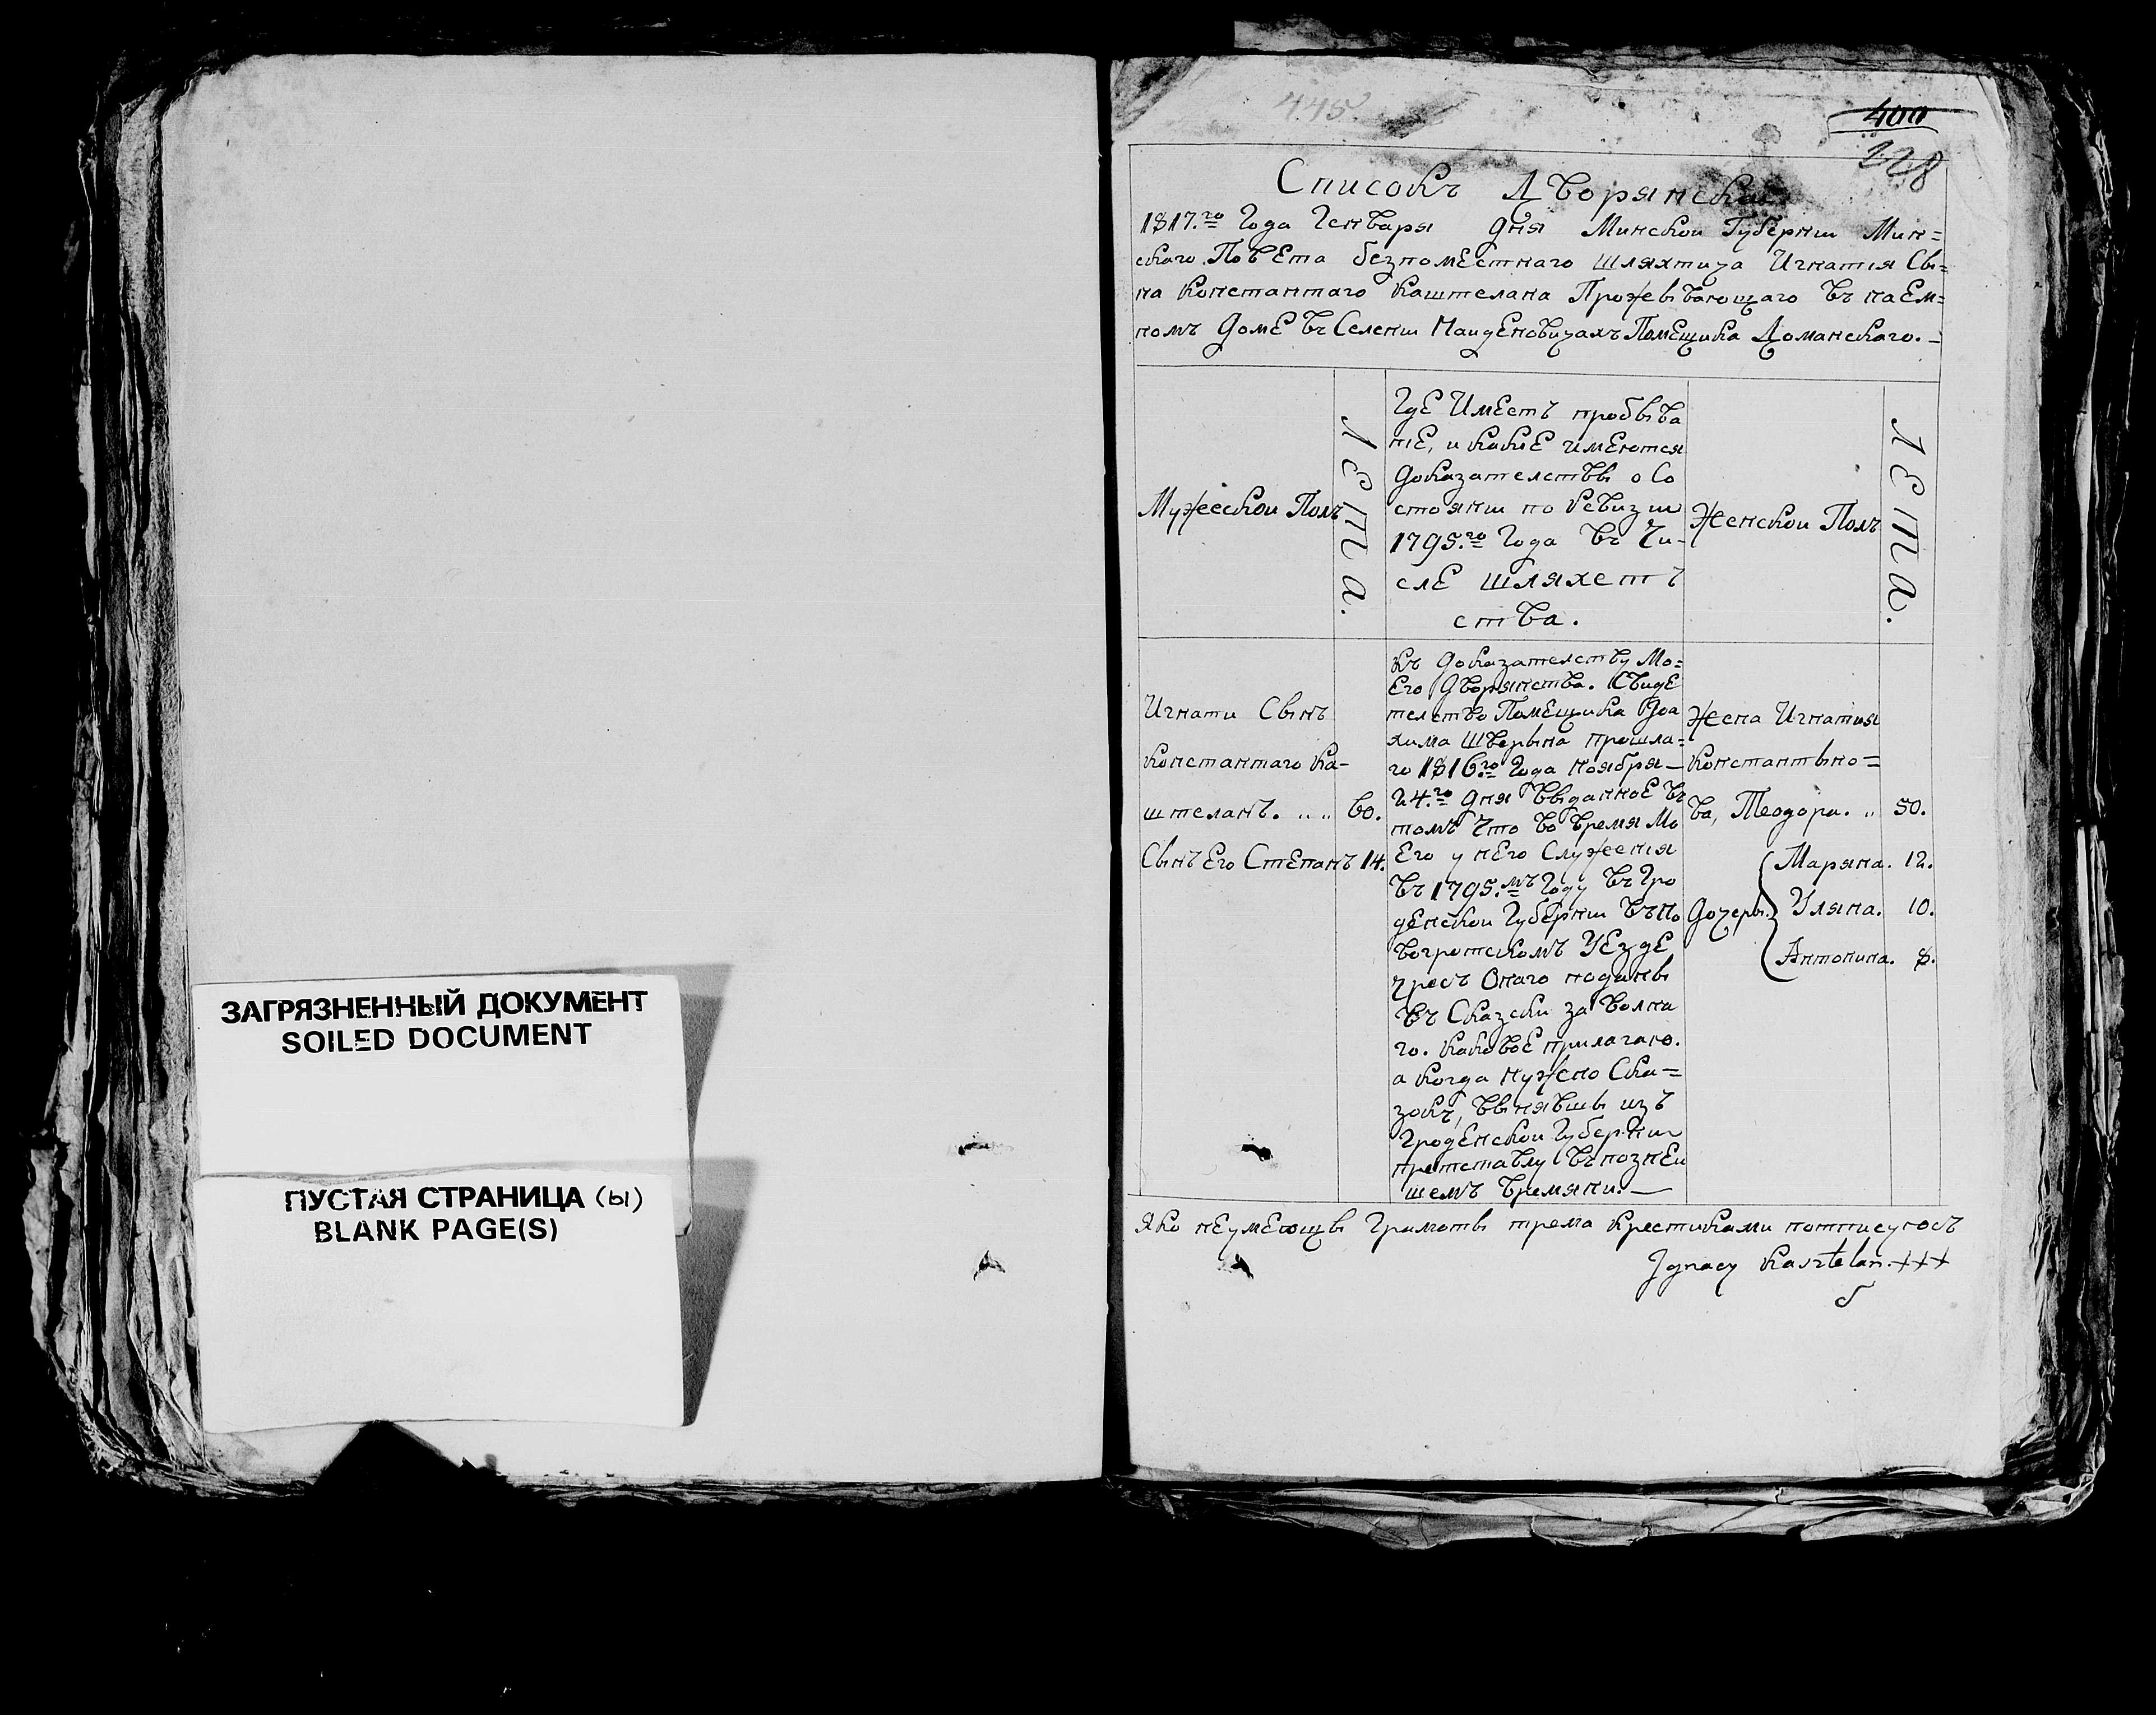 ЗАГРЯЗНЕННЫЙ ДОКУМЕНТ
SOILED DOCUMENT
ПУСТАЯ СТРАНИЦА (Ы)
BLANK PAGE(S)
445
400
228
Списокъ Дворянской
1817.го Года Генваря дня Минской Губернии Мин=
скаго Повета безпоместнаго шляхтича Игнатия Сы=
на Константаго Каштелана Прожевывающаго въ наем=
номъ доме въ Селении Наиденовичахъ Помещика Доманскаго. –
Мужескои Полъ
Лета.
Где Иместъ пробыва
ние, и какие имеются
доказателствы о Со
стоянии по Ревизии
1795.го Года въ Чи-
сле шляхетъ
ства.
Женскои Полъ
Лета.
Игнати Сынъ
Константаго Ка-
штеланъ. „ „ 60.
Сынъ Его Степанъ 14.
Къ доказателству Мо=
Его дворянства. Свиде
телство Помещика Иоа
хима Шверына прошла=
го 1816.го Года ноября –
24.го дня выданное въ
томъ что во время Мо
Его у него Служения
въ 1795.мъ Году въ Гро
денской Губернии въ Но
вогротскомъ Уезде
чресъ Онаго поданы
въ Сказски за волна
го. каковое прилагаю.
а когда нужно Ска=
зокъ, вынявшы изъ
Гроденской Губернии
претставлу въ познеи
шемъ времяни. –
Жена Игнатия
Константыно=
ва, Теодора. „ 50.
Дочеры.
Маряна. 12.
Уляна. 10.
Антонина. 8.
Яко неумеющы Грамоты трема крестиками потписуюсъ
Jgnacy Kasztelan. +++